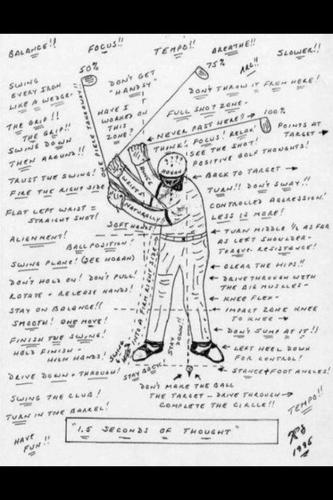 BALANCE!!
FOCUS!!
TEMPO!!
BREATHE!!
SLOWER!!
50%
75%
ARC!!
SWING
EVERY IRON
LIKE A WEDGE.
DON'T GET
"HANDSY"
DON'T THROW IT FROM HERE!
THE GRIP!!
THE GRIP!!
HAVE I
WORKED ON
THIS
ZONE?
FULL SHOT ZONE-
100%
POINDS AT
TARGET →
SWING DOWN
THEN AROUND!!
ONE PIECE TAKEAWAY!
NEVER FAST HERE!!
THINK! FOCUS! RELAX!
SEE THE SHOT!
POSITIVE GOLF THOUGHTS!
TRUST THE SWING!
FIRE THE RIGHT SIDE
HOGAN
BACK TO TARGET →
TURN!! DON'T SWAY!!
CONTROLLED AGGRESSION.
LESS IS MORE!
FLAT LEFT WRIST =
STRAIGHT SHOT!
WRISTS
NATURALLY!
SOFT HANDS!
ALIGNMENT!
BALL POSITION!
TURN MIDDLE 1/2 AS FAR
AS LEFT SHOULDER -
TORQUE. RESISTANCE!
SWING PLANE! (SEE HOGAN)
CLEAR THE HIPS!!
DON'T HOLD ON! DON'T PULL!
ROTATE + RELEASE HANDS!
DRIVE THROUGH WITH
THE BIG MUSCLES -
STAY ON BALANCE!!
KNEE FLEX-
SMOOTH! ONE MOVE!
IMPACT ZONE KNEE
TO KNEE →
FINISH THE SWING!
HOLD FINISH -
HIGH HANDS!
INTO A FIRM RIGHT SIDE
DON'T JUMP AT IT!!
LEFT HEEL DOWN
FOR CONTROL!
DRIVE DOWN + THROUGH!
SWING
STAY BACK
STAY DOWN!
STANCE + FOOT ANGLES!
SWING THE CLUB!
TURN IN THE BARREL!
DON'T MAKE THE BALL
THE TARGET - DRIVE THROUGH →
COMPLETE THE CIRCLE!!
TEMPO!!
HAVE
FUN!!
"1.5 SECONDS OF THOUGHT"
1995